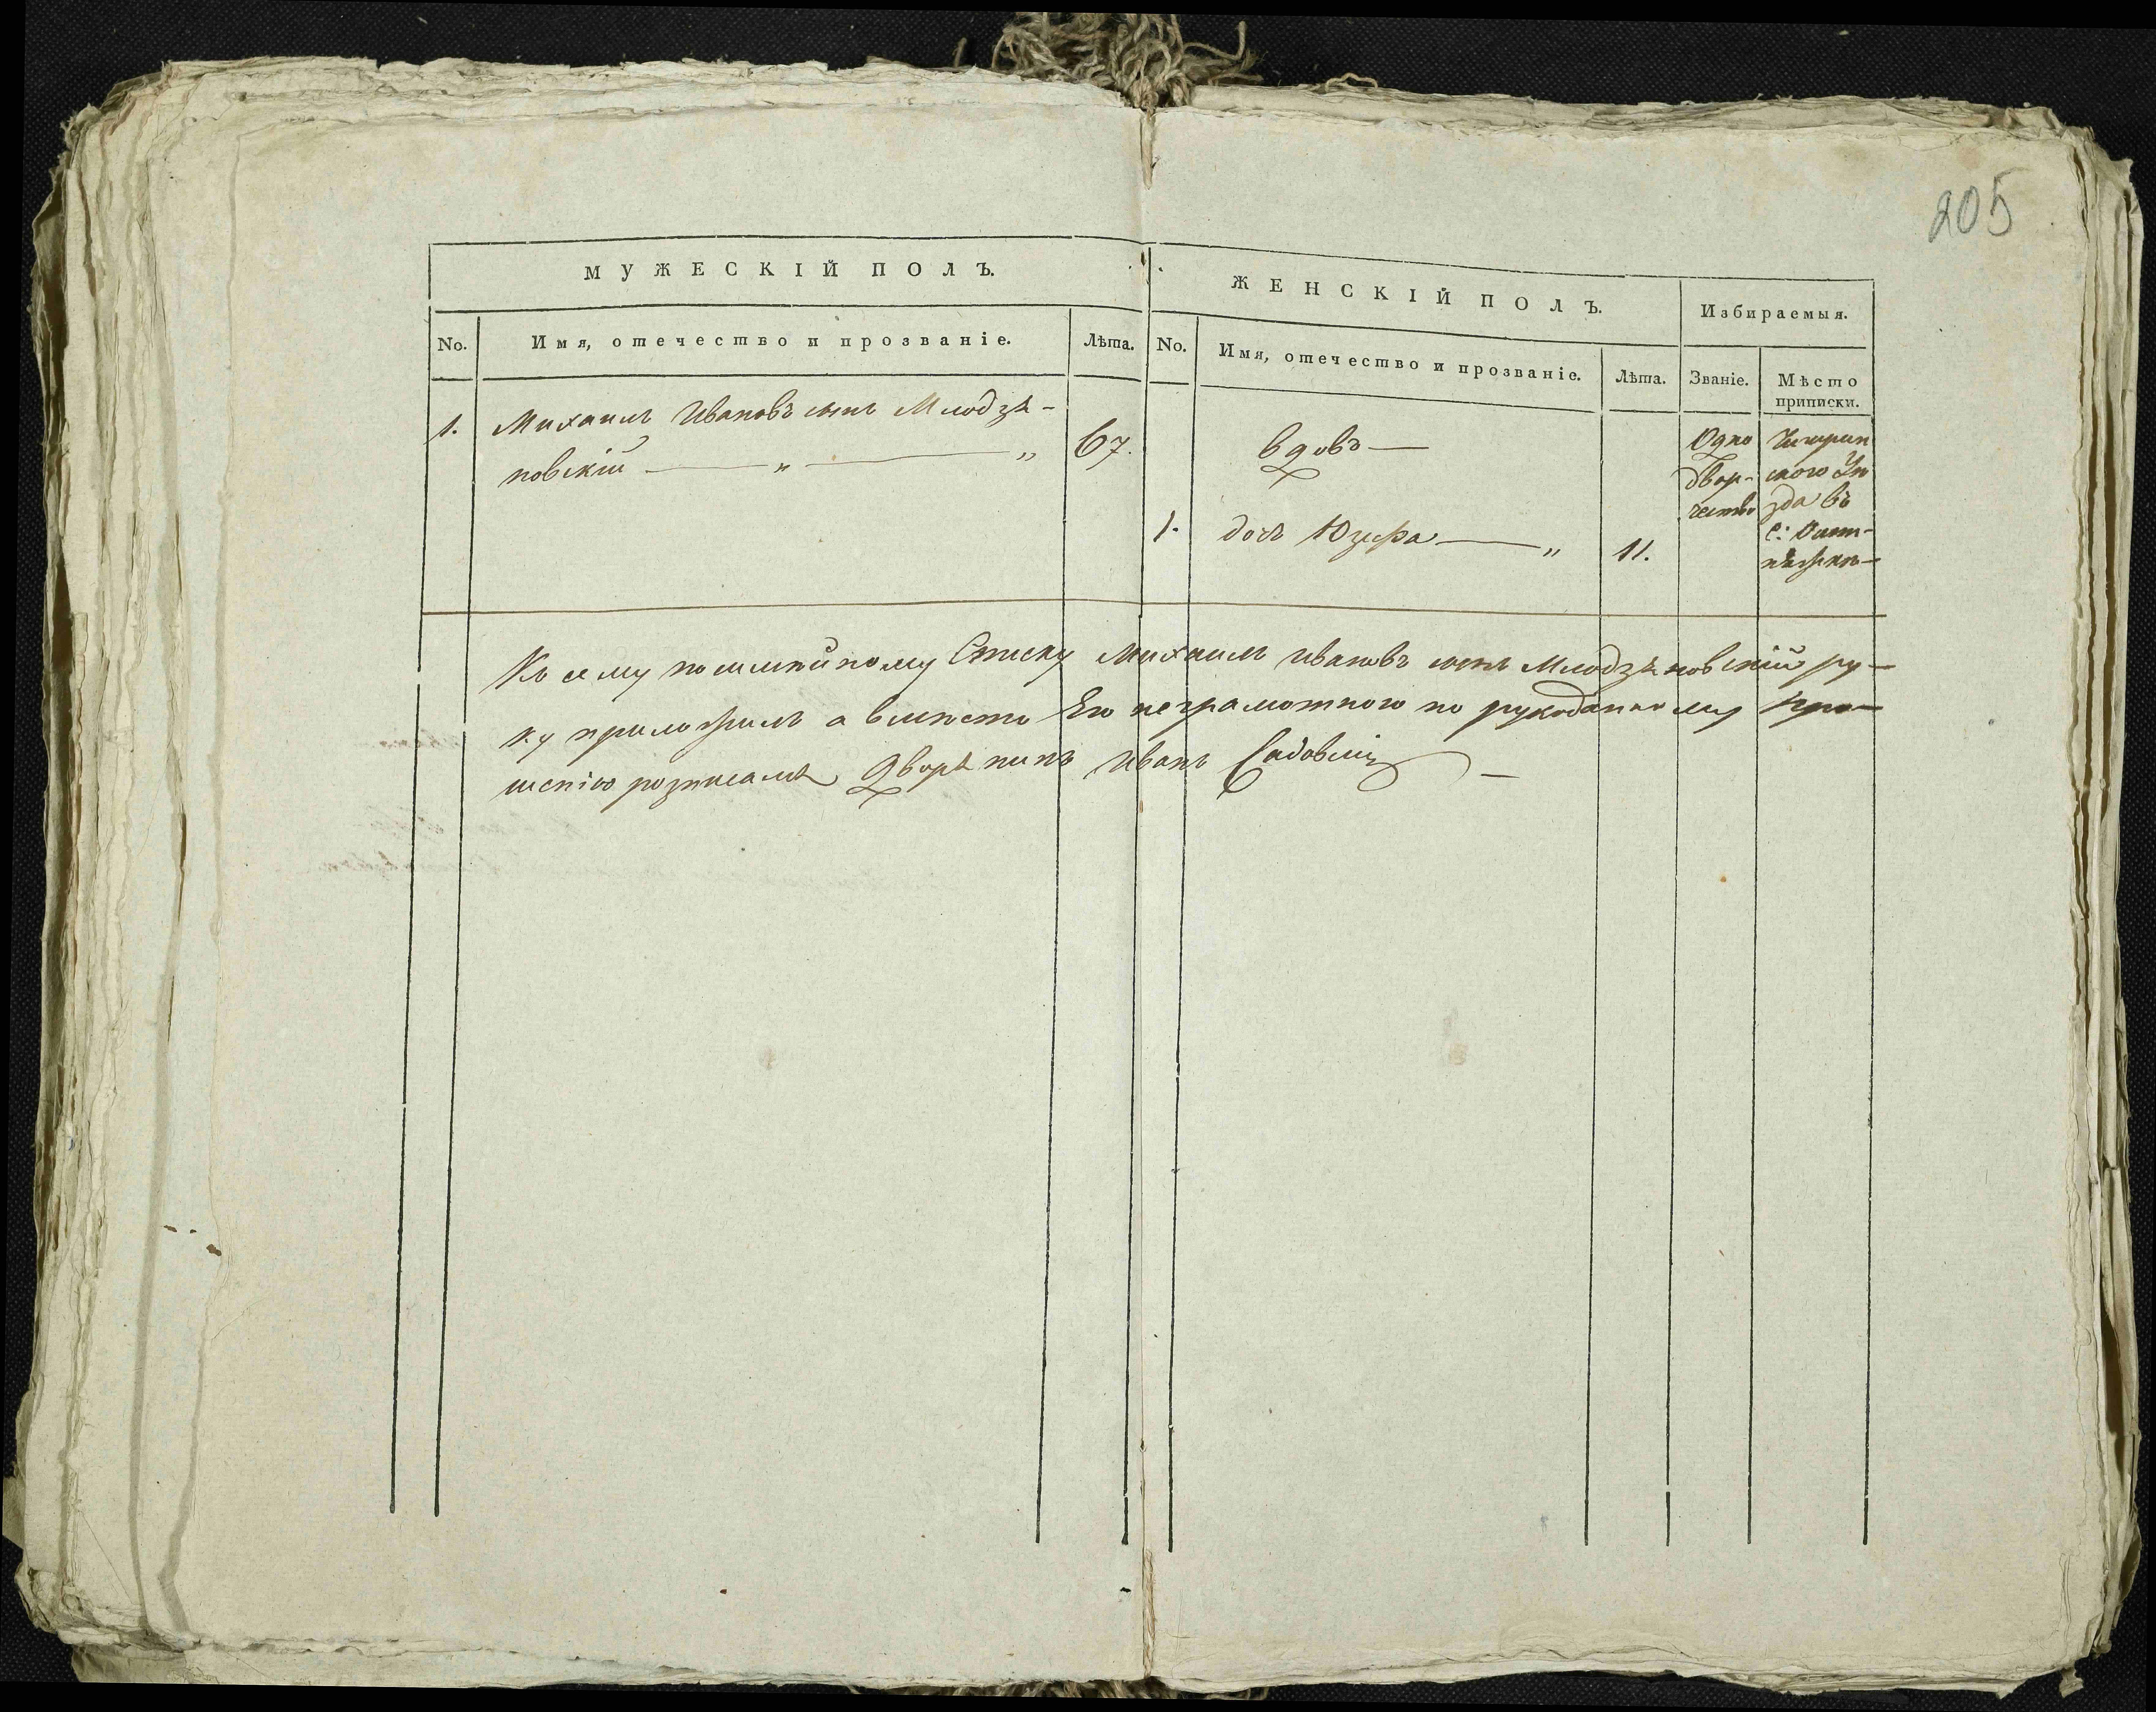 205
МУЖЕСКІЙ ПОЛЪ.
ЖЕНСКІЙ ПОЛЪ.
Избираемыя.
No.
Имя, отечество и прозваніе.
Лѣта.
No.
Имя, отечество и прозваніе.
Лѣта.
Званіе.
Мѣсто
приписки.
1.
Михаилъ Ивановъ сынъ Млодзя-
новскій — „ — „
67.
вдовъ —
1.
дочь Юзефа — „
11.
Одно
двор-
чество
Чигирин
ского Уѣ
зда въ
с:
Къ сему посемейному Списку Михаилъ Ивановъ сынъ Млодзяновскій ру-
ку приложилъ а вместо Его неграмотного по рукоданному про-
шенію розписался Дворянинъ Иванъ Садовскій —